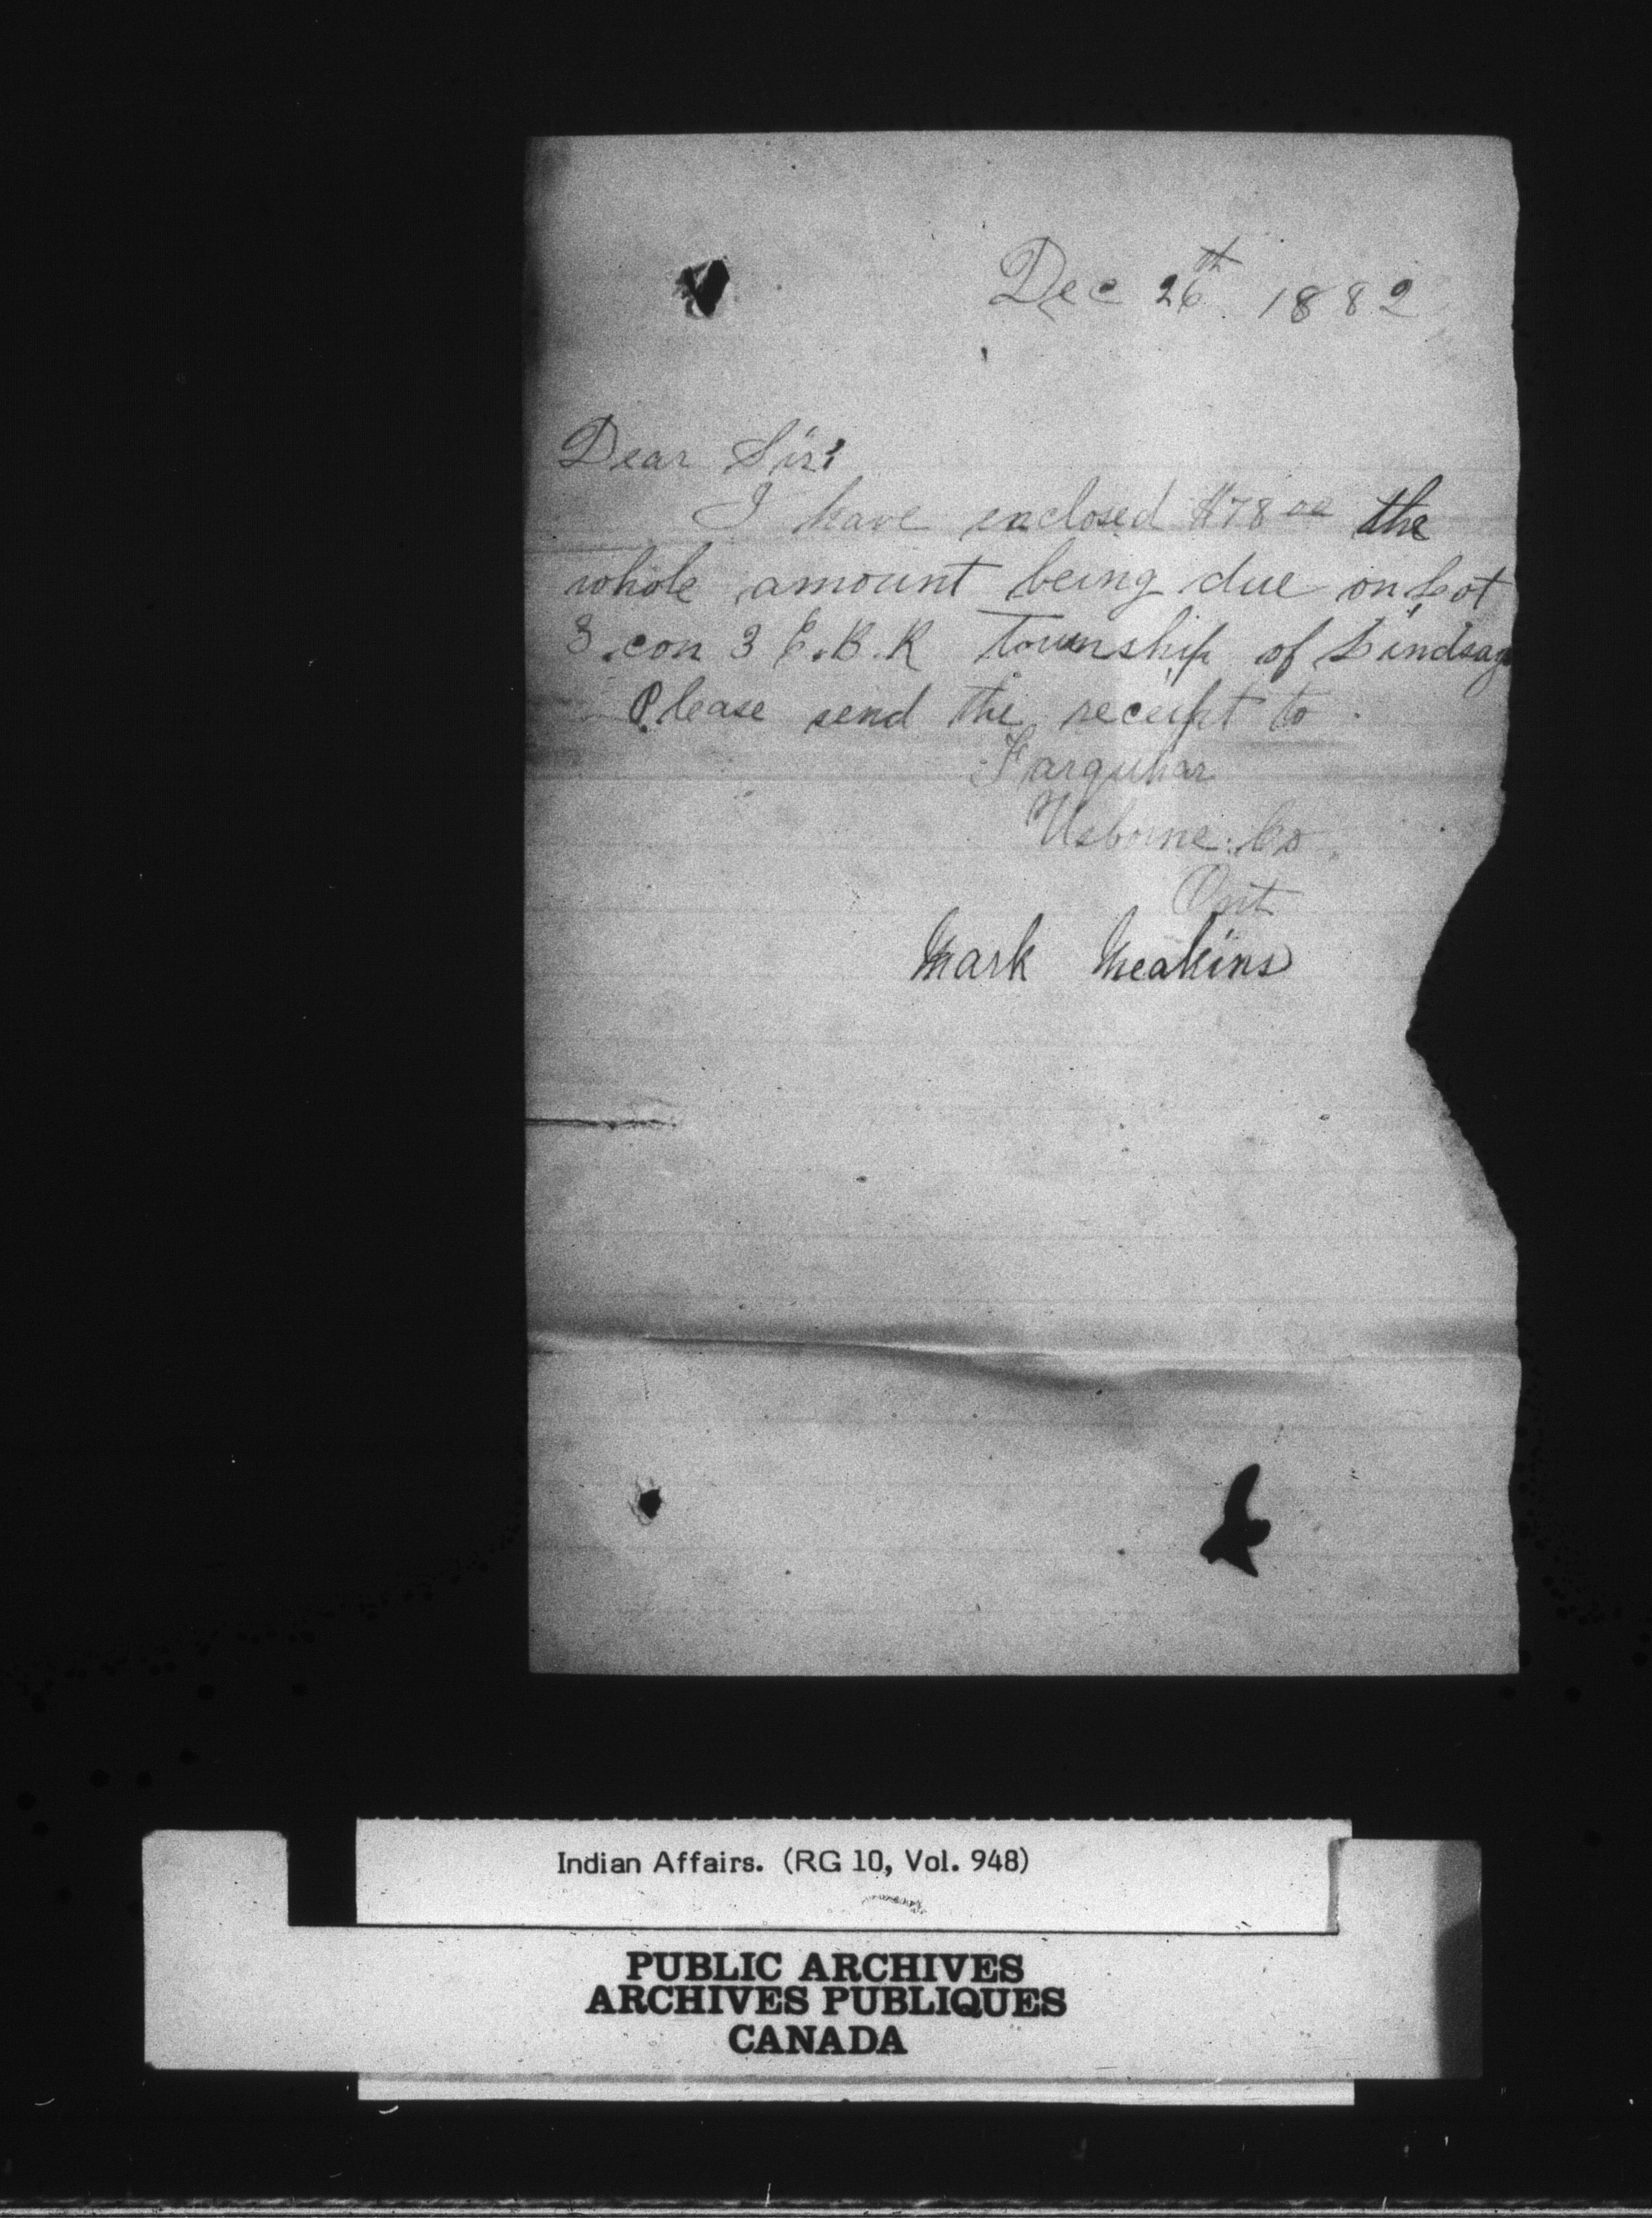 Dec 26th 1882
Dear Sir:
I have enclosed $78 00 the
whole amount being due on Lot
3. con 3 E.B.R Township of Lindsay
Please send the receipt to
Farquhar
Usborne. Co
Ont
Mark Meakins
Indian Affairs. (RG 10, Vol. 948)
PUBLIC ARCHIVES
ARCHIVES PUBLIQUES
CANADA